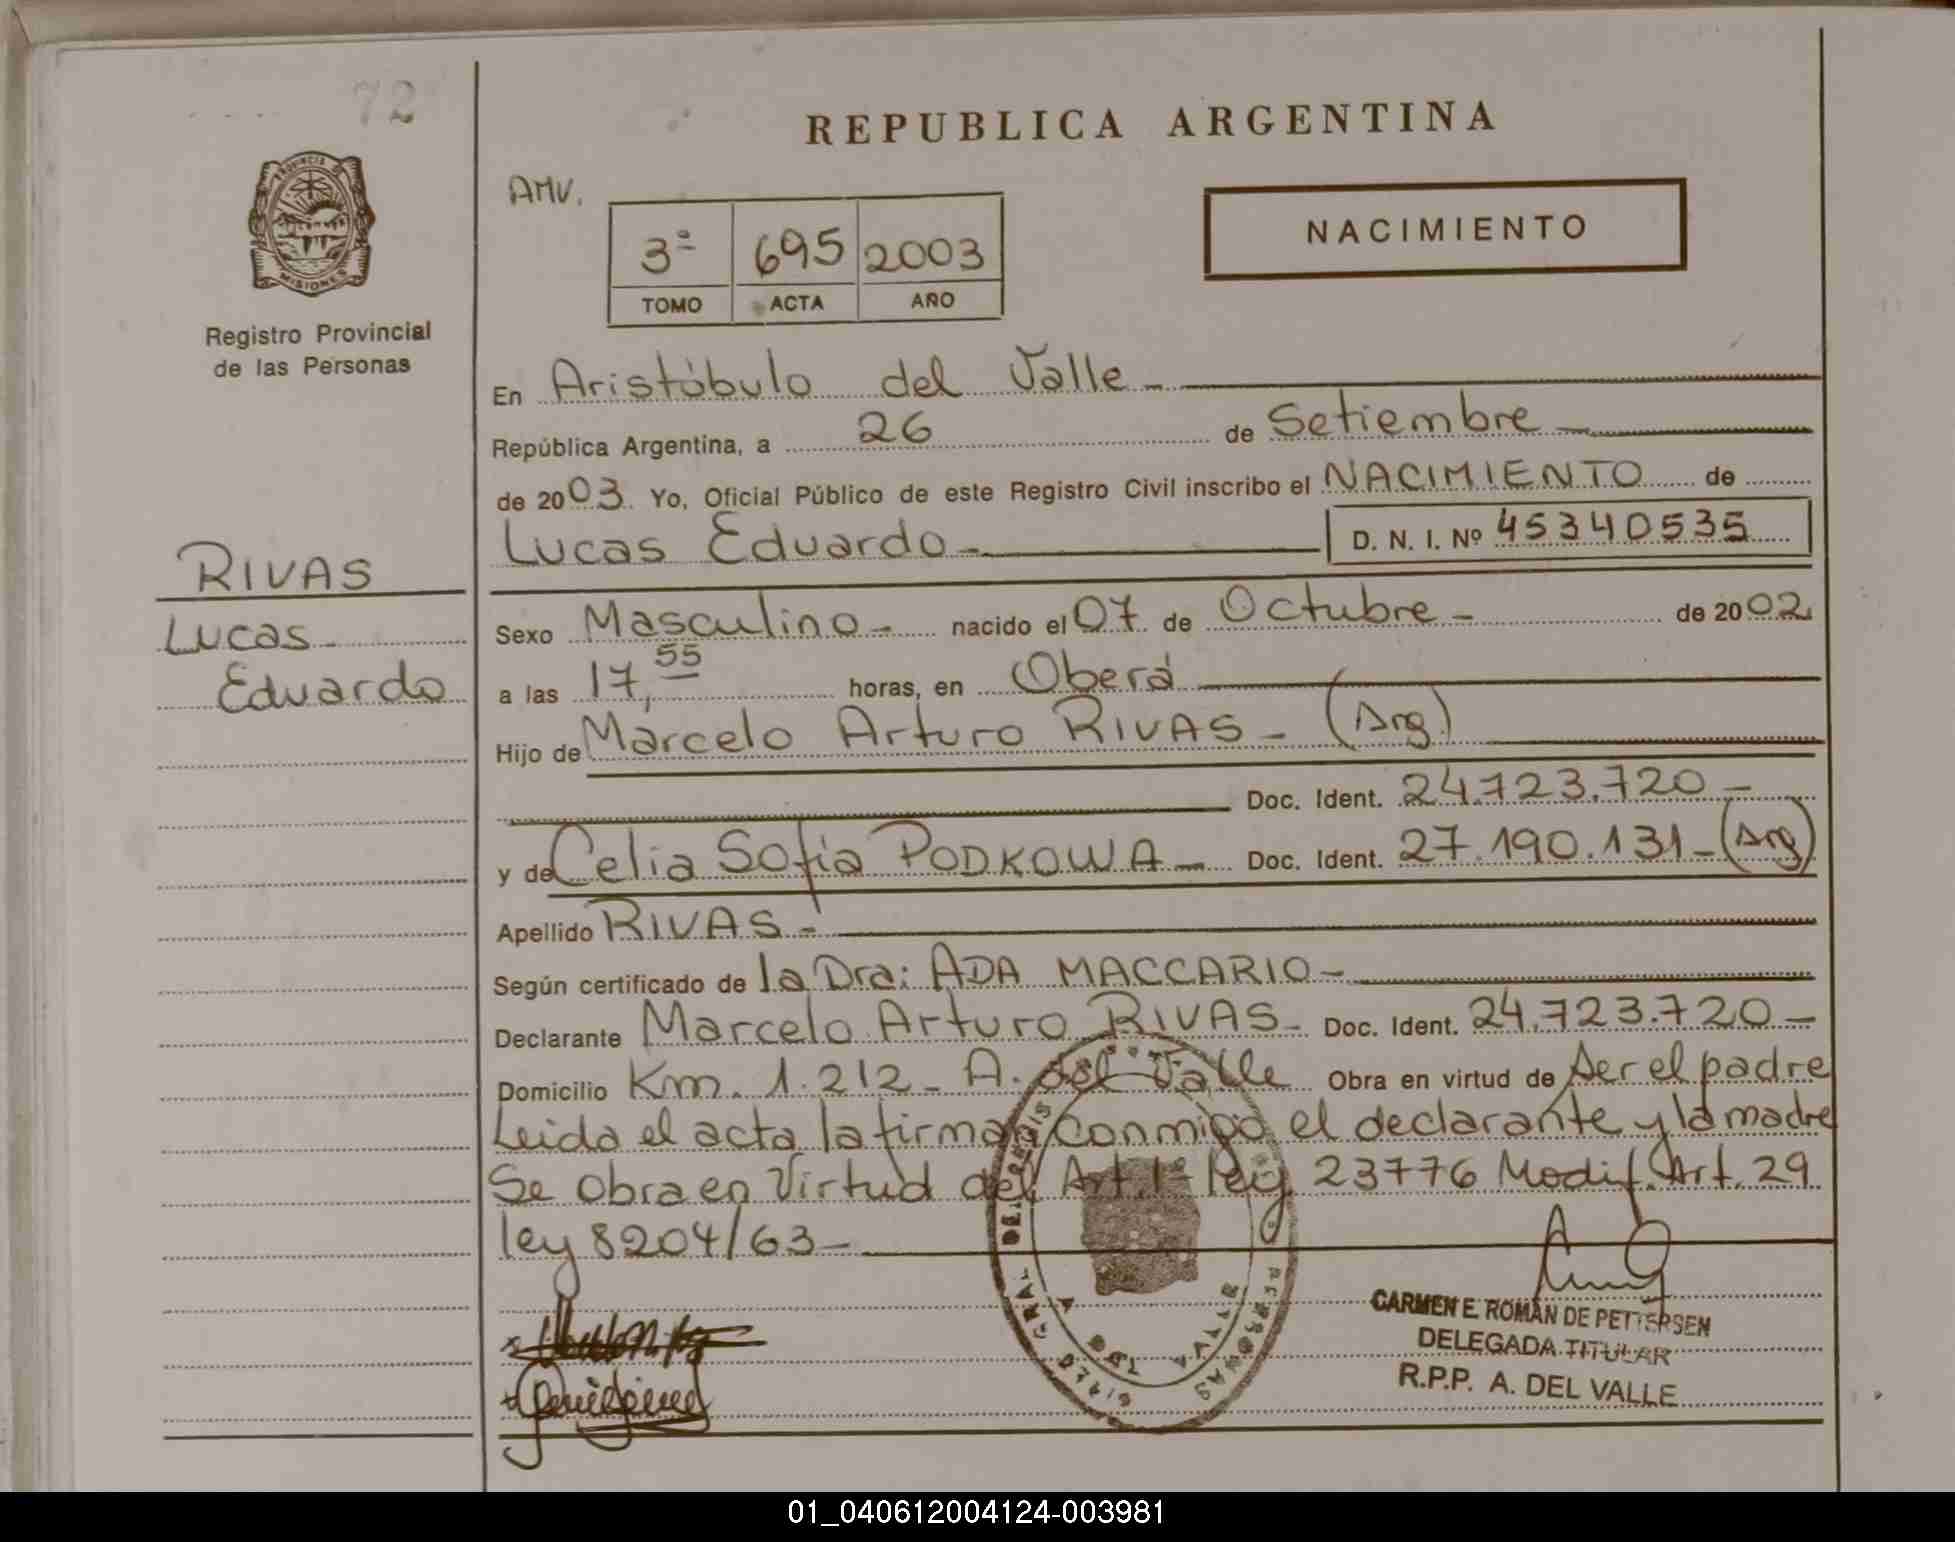 72
REPUBLICA ARGENTINA
AMV.
3ª 695 2003
TOMO ACTA AÑO
NACIMIENTO
PROVINCIA DE MISIONES
Registro Provincial
de las Personas
En Aristóbulo del Valle -
República Argentina, a 26 de Setiembre -
de 2003. Yo, Oficial Público de este Registro Civil inscribo el NACIMIENTO de
Lucas Eduardo - D. N. I. Nº 45340535
RIVAS
Lucas -
Eduardo
Sexo Masculino - nacido el 07 de Octubre - de 2002
a las 17,55 horas, en Oberá
Hijo de Marcelo Arturo RIVAS - (Arg)
Doc. Ident. 24.723.720 -
y de Celia Sofía PODKOWA - Doc. Ident. 27.190.131 - (Arg)
Apellido RIVAS -
Según certificado de la Dra: ADA MACCARIO -
Declarante Marcelo Arturo RIVAS - Doc. Ident. 24.723.720 -
Domicilio Km. 1.212 - A. del Valle Obra en virtud de ser el padre
Leida el acta la firman conmigo el declarante y la madre
Se obra en Virtud del Art. 1º ley 23776 Modif. Art. 29
ley 8204/63 -
CARMEN E. ROMAN DE PETTERSEN
DELEGADA TITULAR
R.P.P. A. DEL VALLE
01_040612004124-003981